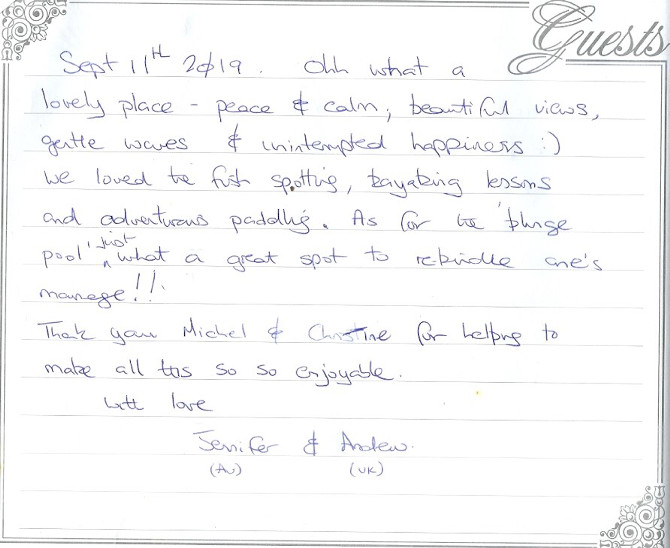 Guests
Sept 11th 2019. Ohh what a
lovely place - peace & calm, beautiful views,
gentle waves & uninterupted happiness :)
We loved the fish spotting, kayaking lessons
and adventurous paddling. As for the 'plunge
pool' just what a great spot to re-kindle one's
marrage!!
Thank you Michel & Christine for helping to
make all this so so enjoyable.
With love
Jennifer & Andrew.
(AU) (UK)